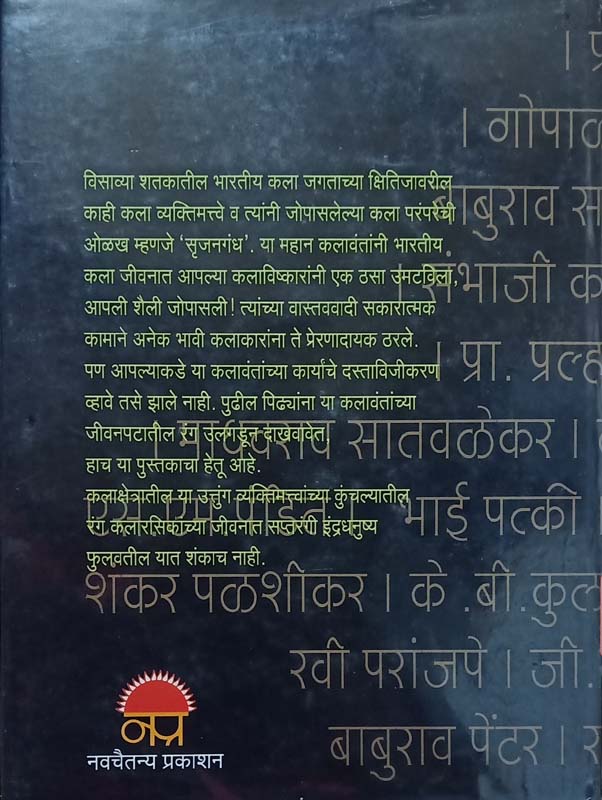 । प्र
। गोपाळ
बाबुराव स
। संभाजी क
। प्रा. प्रल्ह
। माधवराव सातवळेकर ।
एस.एम.पंडित । भाई पत्की ।
शंकर पळशीकर । के .बी.कुल
रवी परांजपे । जी.
बाबुराव पेंटर । र
विसाव्या शतकातील भारतीय कला जगताच्या क्षितिजावरील
काही कला व्यक्तिमत्त्वे व त्यांनी जोपासलेल्या कला परंपरेची
ओळख म्हणजे ‘सृजनगंध’. या महान कलावंतांनी भारतीय
कला जीवनात आपल्या कलाविष्कारांनी एक ठसा उमटविला,
आपली शैली जोपासली! त्यांच्या वास्तववादी सकारात्मक
कामाने अनेक भावी कलाकारांना ते प्रेरणादायक ठरले.
पण आपल्याकडे या कलावंतांच्या कार्यांचे दस्ताविजीकरण
व्हावे तसे झाले नाही. पुढील पिढ्यांना या कलावंतांच्या
जीवनपटातील रंग उलगडून दाखवावेत,
हाच या पुस्तकाचा हेतू आहे.
कलाक्षेत्रातील या उत्तुंग व्यक्तिमत्त्वांच्या कुंचल्यातील
रंग कलारसिकांच्या जीवनात सप्तरंगी इंद्रधनुष्य
फुलवतील यात शंकाच नाही.
नप्र
नवचैतन्य प्रकाशन